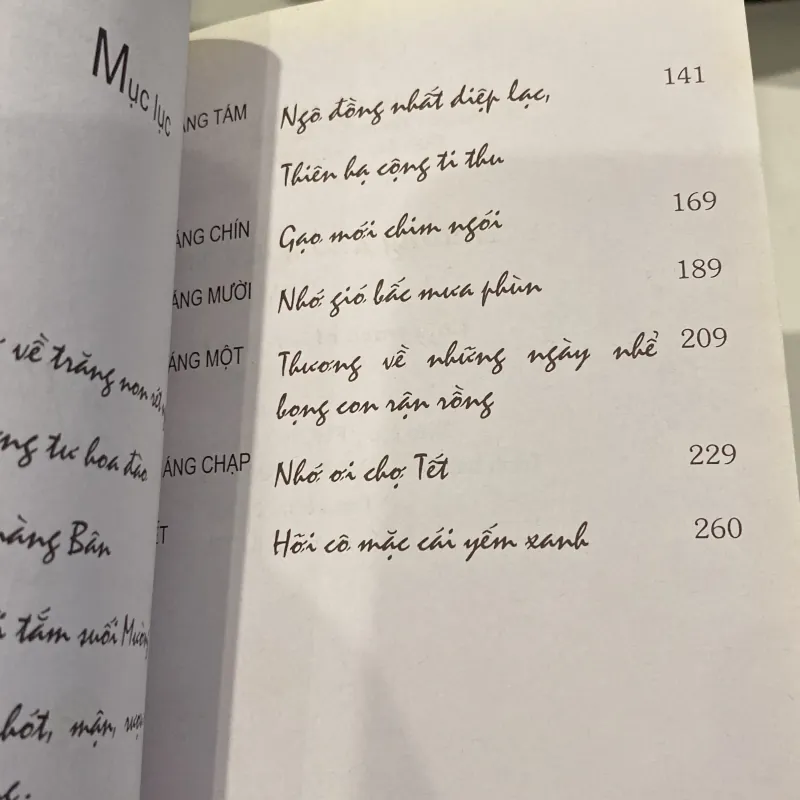 Mục lục
về trăng non rét
tư hoa đào
Bân
tắm suối
hót, mận,
ÁNG TÁM Ngô đồng nhất diệp lạc, 141
Thiên hạ cộng ti thu
ÁNG CHÍN Gạo mới chim ngói 169
ÁNG MƯỜI Nhớ gió bấc mưa phùn 189
ÁNG MỘT Thương về những ngày nhể 209
bọng con rận rồng
ÁNG CHẠP Nhớ ơi chợ Tết 229
ẾT Hỡi cô mặc cái yếm xanh 260